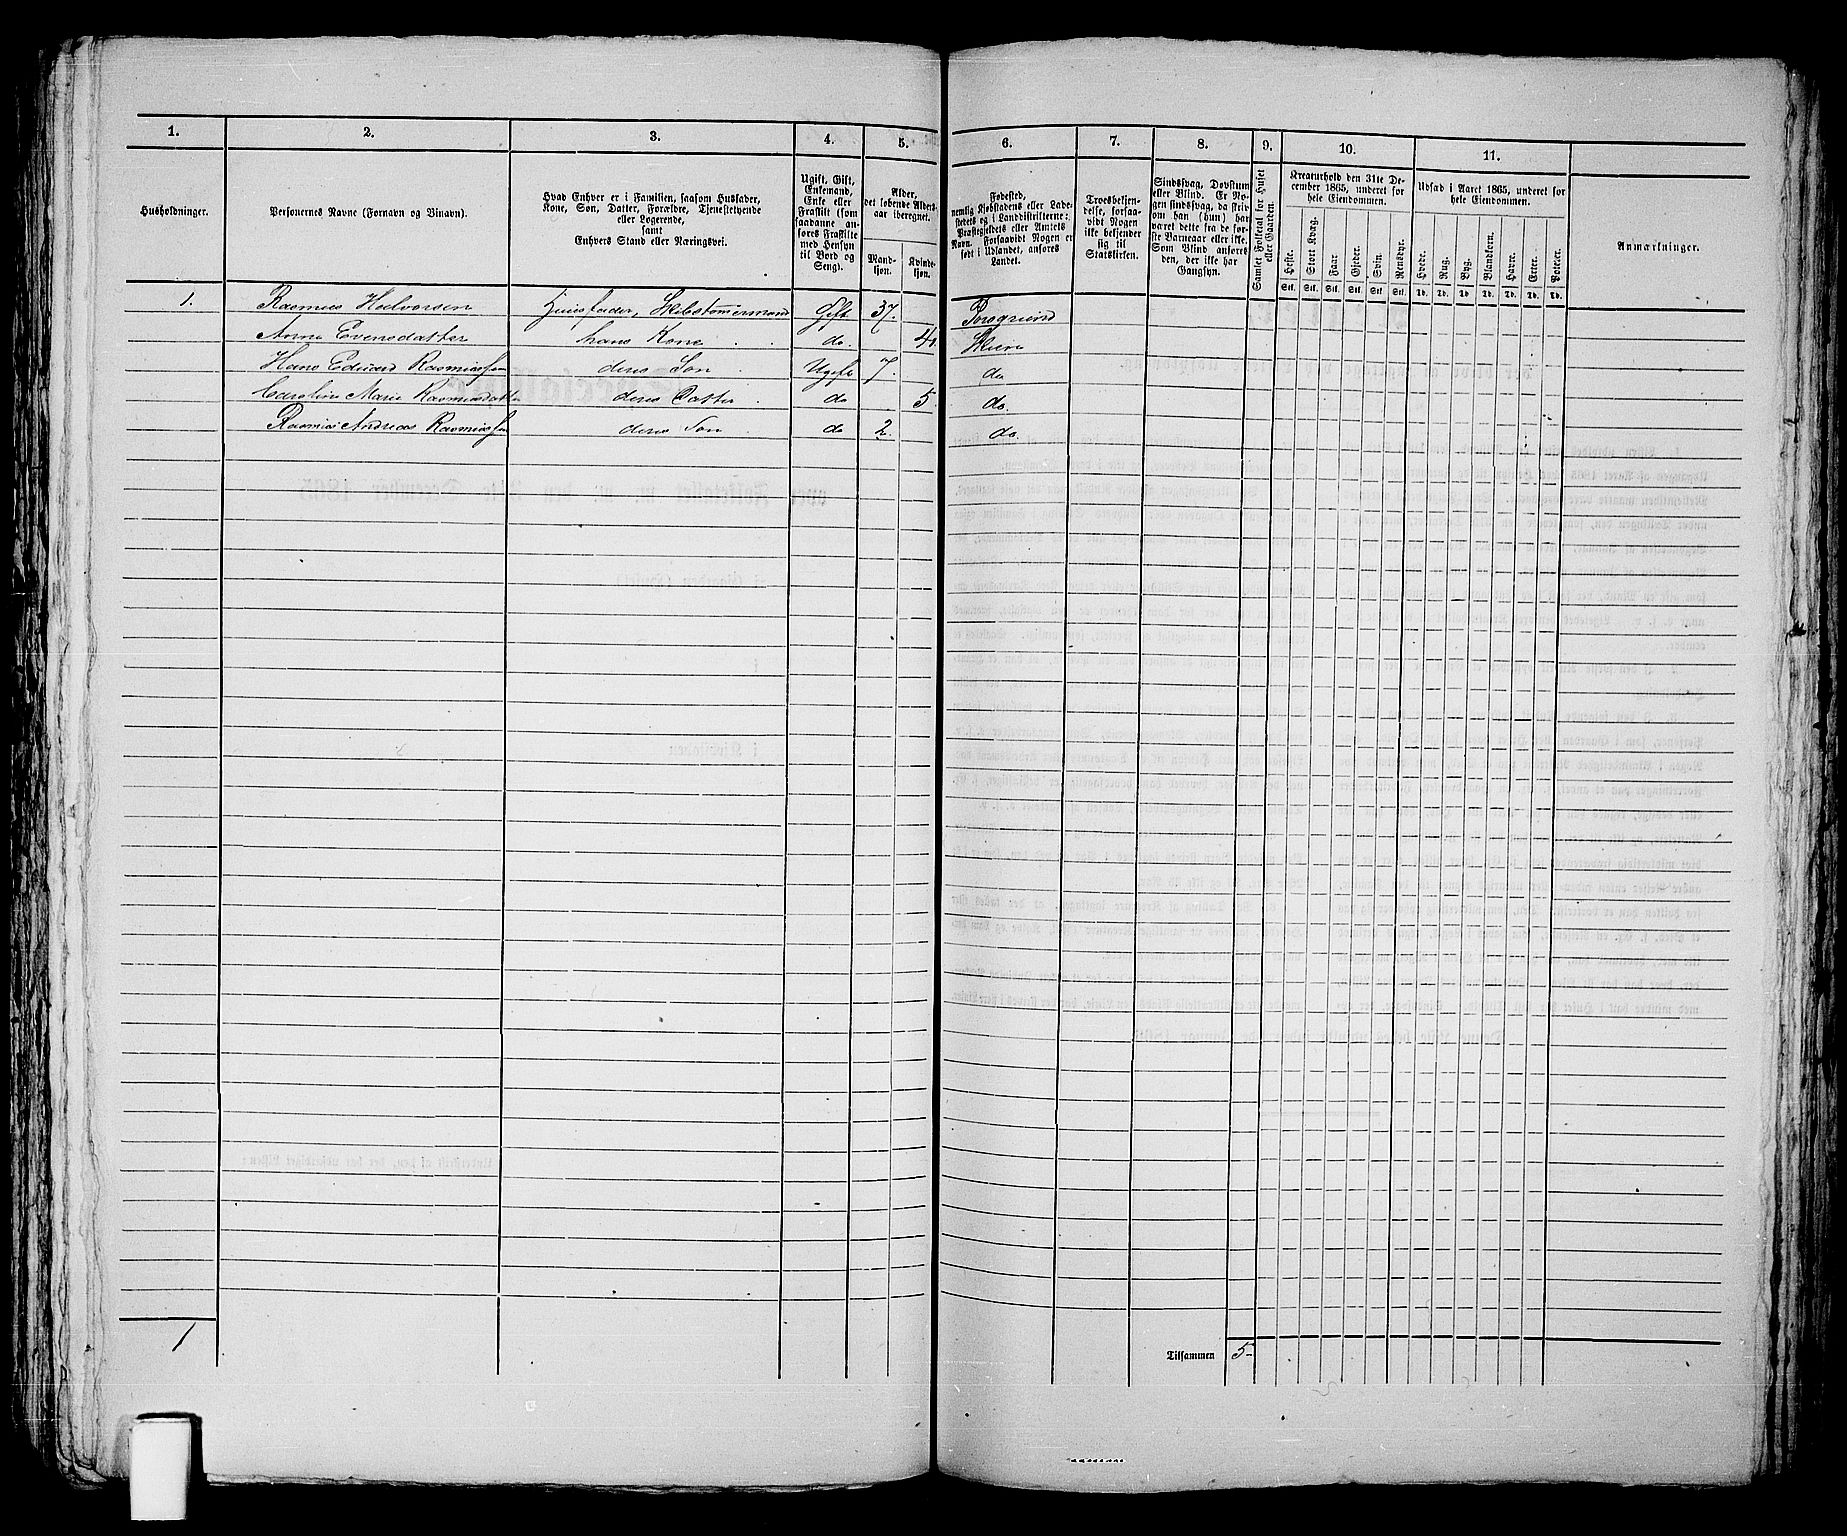 1. 2. 3. 4. 5. 6. 7. 8. 9. 10. 11.
Husholdninger.
Personernes Navne (Fornavn og Binavn).
Hvad Enhver er i Familien, saasom Husfader,
Kone, Søn, Datter, Forældre, Tjenestetyende
eller Logerende,
samt
Enhvers Stand eller Næringsvei.
Ugift, Gift,
Enkemand,
Enke eller
Fraskilt (som
saadanne an-
føres Fraskilte
med Hensyn
til Bord og
Seng).
Alder,
det løbende Alders-
aar iberegnet.
Mand-
kjøn.
Kvinde-
kjøn.
Fødested,
nemlig Kjøbstadens eller Lade-
stedets og i Landdistrikterne:
Præstegjeldets eller Amtets
Navn. Forsaavidt Nogen er
født i Udlandet, anføres
Landet.
Troesbekjen-
delse, forsaa-
vidt Nogen
ikke bekjender
sig til
Statskirken.
Sindssvag, Døvstum
eller Blind. Er No-
gen sindssvag, da skriv
om han (hun) har
været dette fra de før-
ste Barneaar eller ikke.
Som Blind anføres
den, der ikke har
Gangsyn.
Samlet Folketal for Huset
eller Gaarden.
Kreaturhold den 31te De-
cember 1865, underet for
hele Eiendommen.
Heste. Stort Kvæg. Faar. Gjeder. Svin. Rensdyr.
Stk. Stk. Stk. Stk. Stk. Stk.
Udsæd i Aaret 1865, underet for
hele Eiendommen.
Hvede. Rug. Byg. Blandkorn. Havre. Erter. Poteter.
Td. Td. Td. Td. Td. Td. Td.
Anmærkninger.
1. Rasmus Halvorsen Huusfader, Skibstømermand Gift 37. Porsgrund
Anne Evensdatter hans Kone do. Skien
Hans Eduard Rasmussen deres Søn Ugift 7. do
Caroline Marie Rasmusdatter deres Datter do 5 do.
Rasmus Andreas Rasmussen deres Søn do 2. do.
1
Tilsammen 5